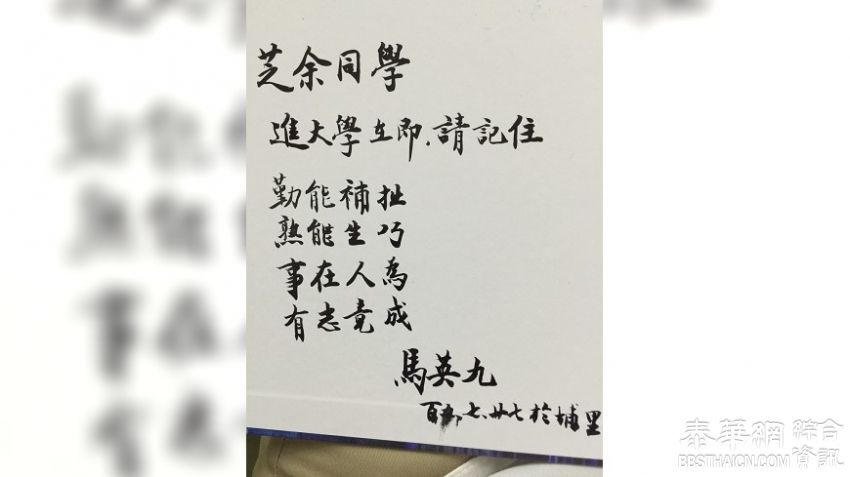 芝余同學
進大學在即,請記住
勤能補拙
熟能生巧
事在人為
有志竟成
馬英九
百五.七.廿七於埔里
泰華網 綜合資訊
BBSTHAICN.COM